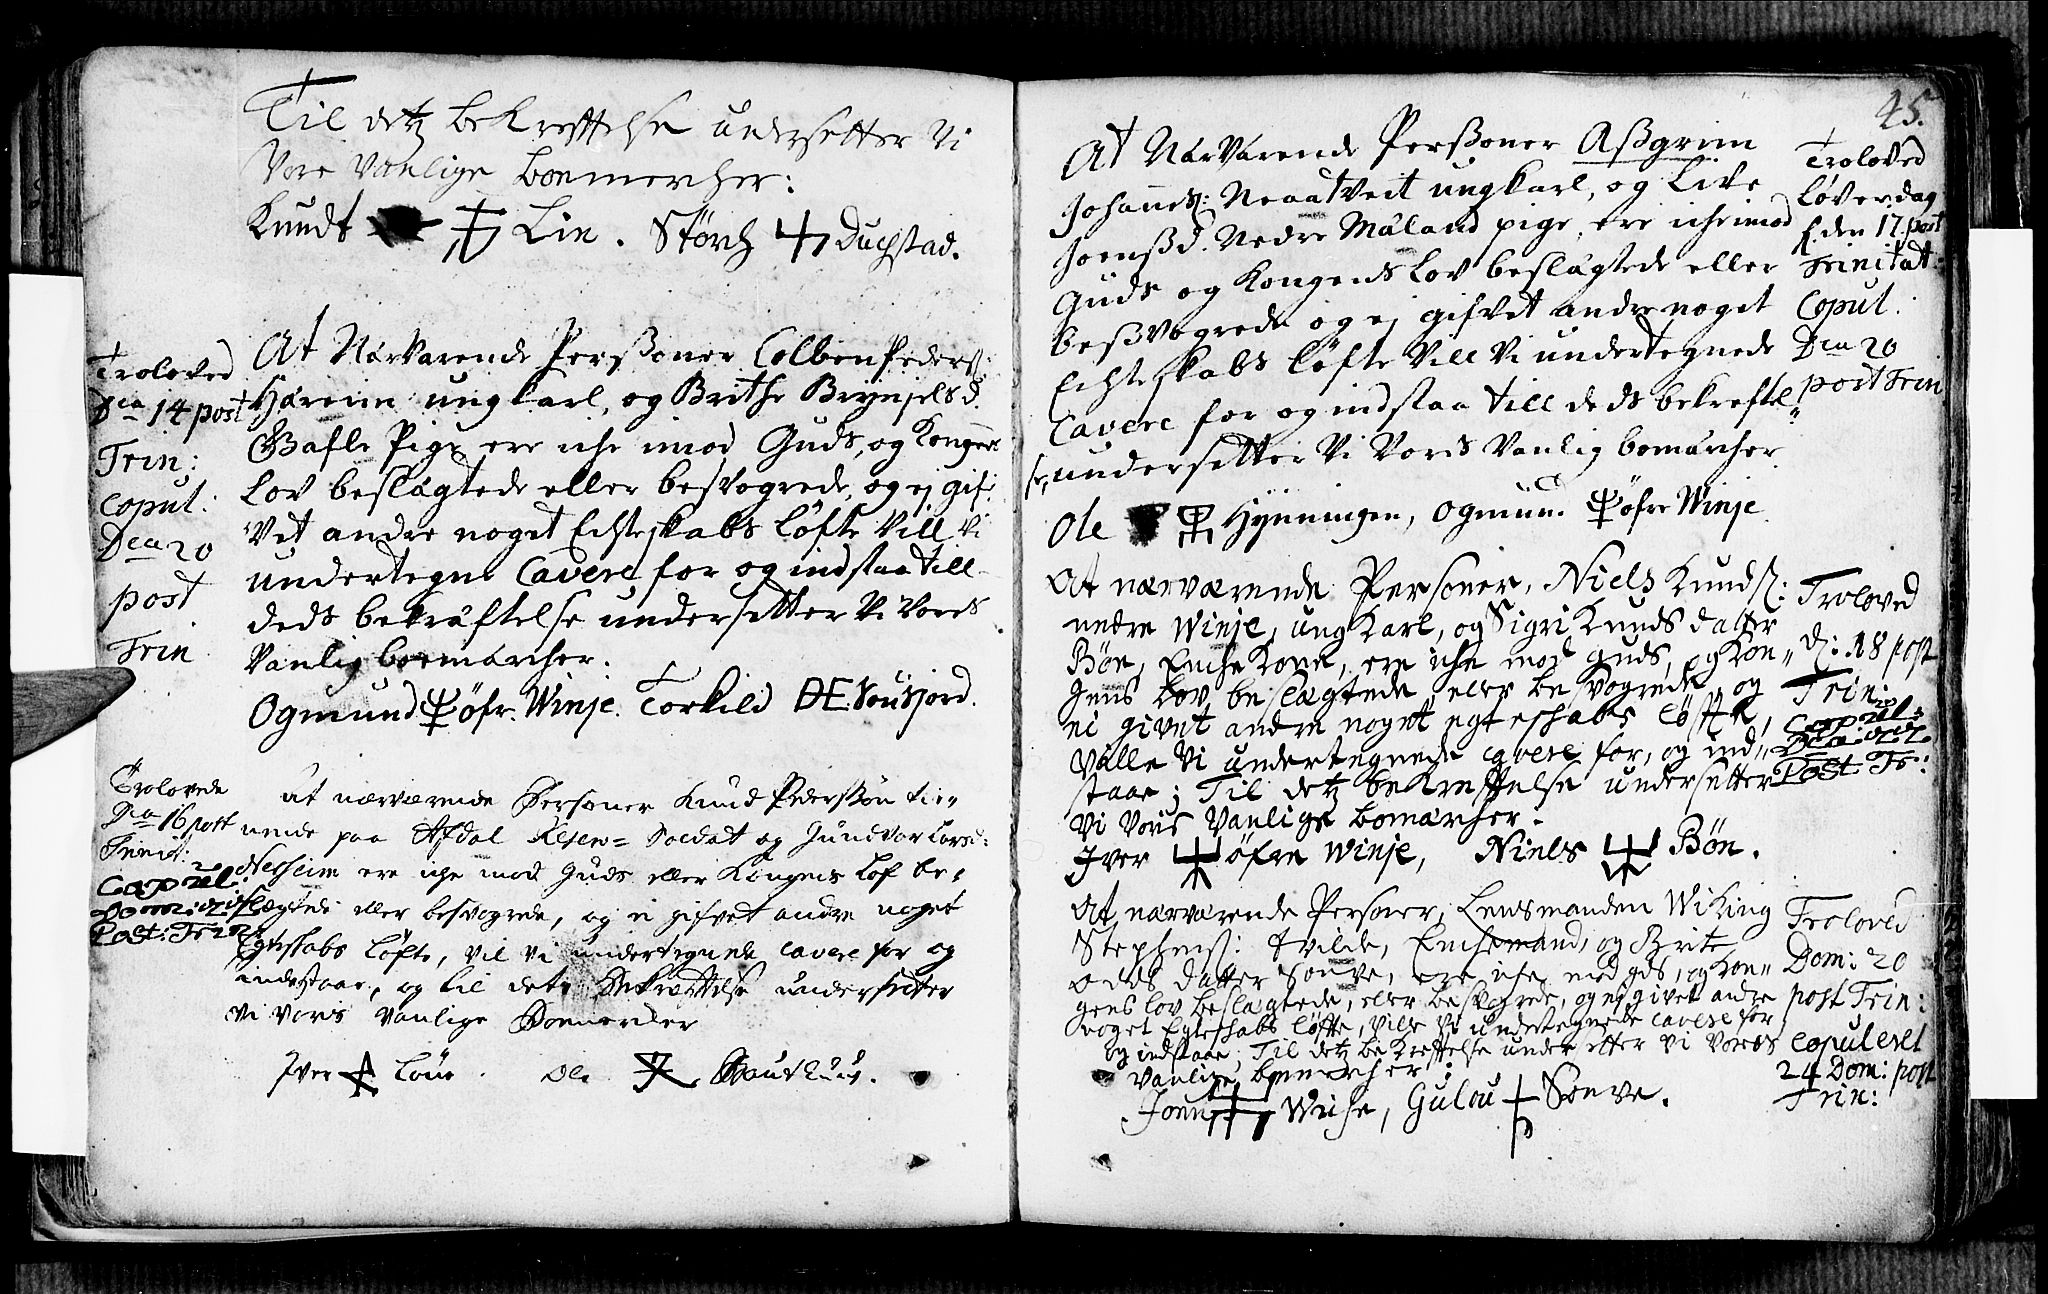 Til detz bekrefftelse undersetter Vi
Vore Vanlige boemercher:
Knudt Lin. Störch Duchstad.
Troloved
Dca 14 post
Trin:
Copul:
Dca 20
post
Trin
At Närvarende Perßoner Colben Peders:
Häreim ungkarl, og Brithe Brynjels d.
Gafle Pige ere iche imod Guds, og Kongens
Lov beslägtede eller besvogrede, og ej gif:
Vet andre noget Echteskabs Löfte Vill Vi
undertegne Cavere for og indstaa till
deds bekräftelse undersetter Vi Vores
Vanlig boemärcher.
Ogmund öfr. Winje. Torkild DE
Trolovede
Dca 16 post
Trinit:
Copul:
Dom: 21
Post: Trin:
At nærværende Personer Knud Pederssön tie=
nende paa Afdal Soldat og Gundvor Lars d:
Nesheim ere iche mod Guds eller Kongens Lof be=
slegtede eller besvogrede, og ei gifvet andre noget
Egteskabs löfte, vil vi undertegnede cavere for og
indestaae, og til detz Bekrefftelse undersetter
vi voris vanlige Boemercker
Iver Löne. Ole
45.
At Närvarende Perßoner Aßgrim
Johannes: ungkarl, og Live
Joensd. Nedre Måland pige, ere iche imod
Guds og Kongens Lov beslägtede eller
beßvogrede og ej gifvet andre noget
Echteskabs löfte Vill Vi undertegnede
Cavere for og indstaa till deds bekreftel=
se, undersetter Vi Vores Vanlig bomärcher.
Ole Hynningen, Ogmun. öfre Winje
Troloved
Löverdag
f. den 17. post
Trinitat:
Copul:
Dca 20
post Trin
At nærværende Personer, Niels Knuds:
nedre Winje, ung Karl, og Sigri Knuds datter
Bön, Enche Kone, ere iche mod guds, og Kon=
gens lov, beslægtede, eller besvogrede, og
ei givet andre noget egteskabs löfte,
Ville Vi undertegnede cavere for, og ind=
staae; Til detz bekreftelse undersetter
Vi Voris Vanlige bomärcher:
Iver öfre Winje, Niels Bön.
Troloved
D: 18 post
Trin:
Copul:
Post Tr:
At nærværende Personer, Lensmanden Wiking
Stephens: Tvilde, Enchemand, og Brite
Odds datter Sonve, ere iche mod gds, og Kon=
gens lov beslægtede, eller besvogrede, og ej givet andre
noget Egteskabs löfte, Ville Vi undertegnede cavere for
og indstaae; Til detz bekreftelse undersetter Vi Vores
vanlige bomercher:
Joen Gulou Sonve.
Troloved
Dom: 20
post Trin:
copuleret
24 Dom: post
Trin: